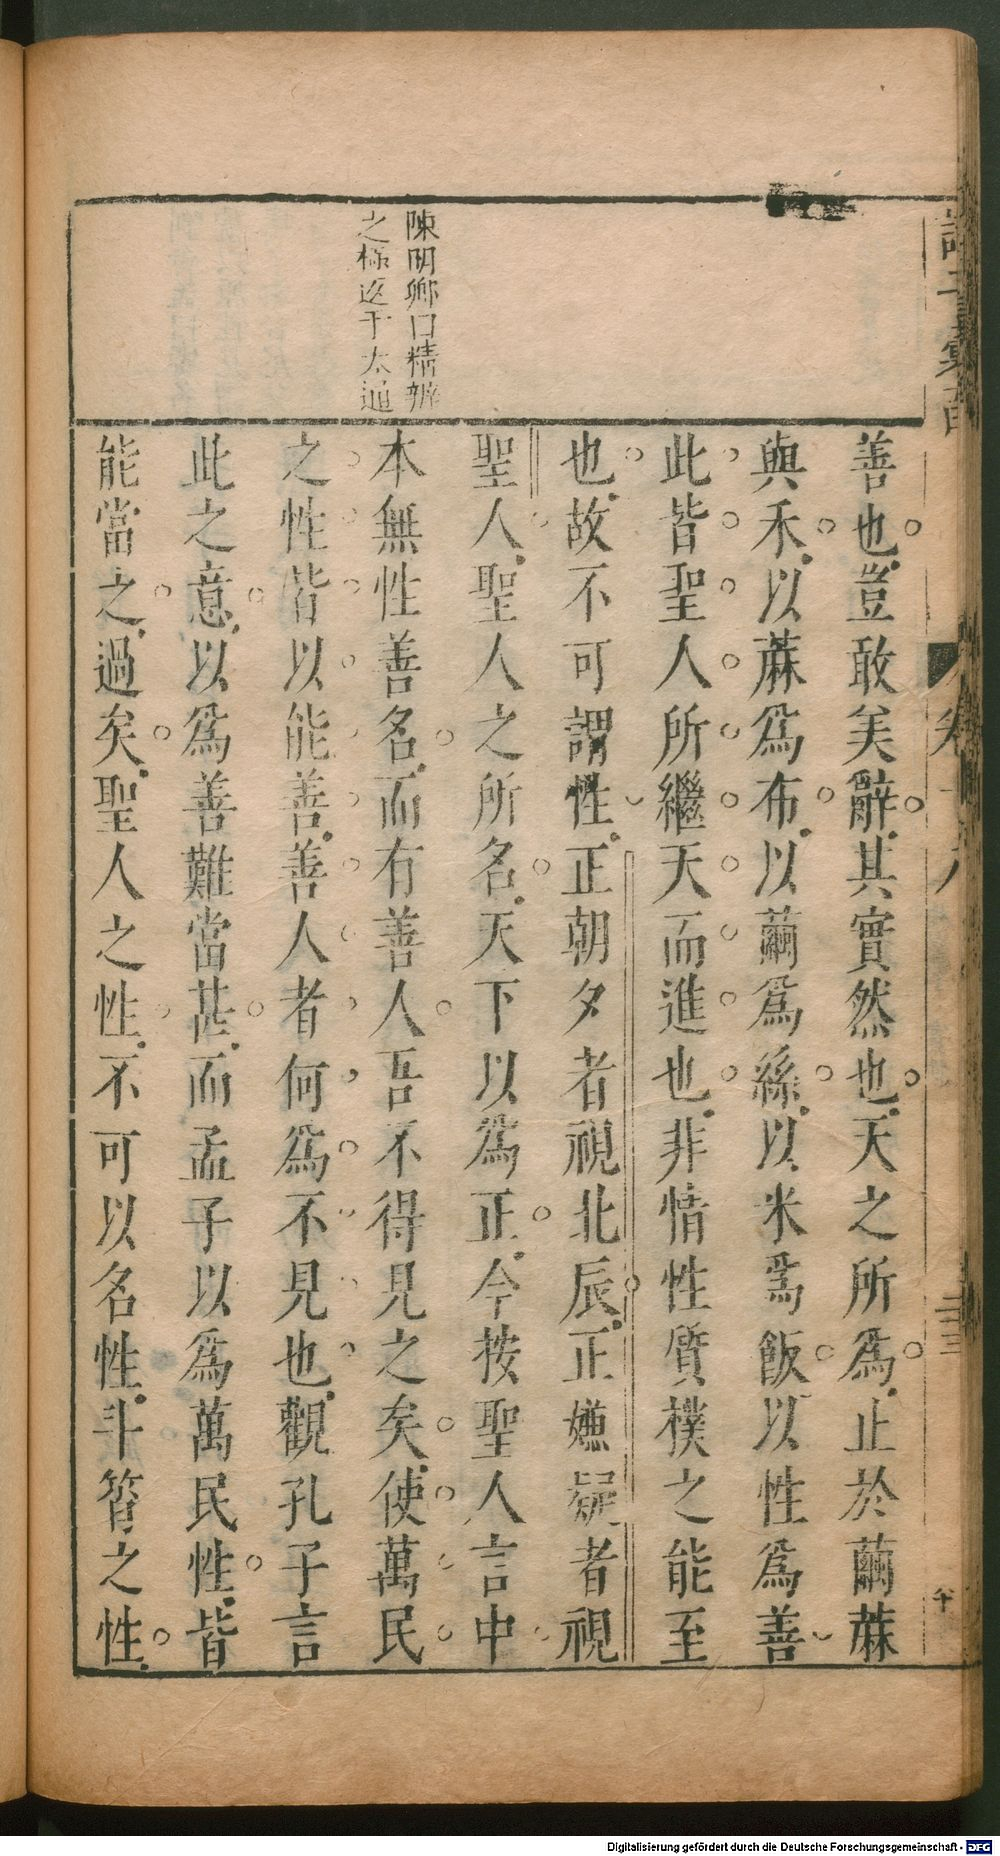 陳明卿曰精辨
之極返于太通
善也豈敢美辭其實然也天之所爲止於繭蔴
與禾以蔴爲布以繭爲絲以米爲飯以性爲善
此皆聖人所繼天而進也非情性質樸之能至
也故不可謂性正朝夕者視北辰正嫌疑者視
聖人聖人之所名天下以爲正今按聖人言中
本無性善名而有善人吾不得見之矣使萬民
之性皆以能善善人者何爲不見也觀孔子言
此之意以爲善難當甚而孟子以爲萬民性皆
能當之過矣聖人之性不可以名性斗筲之性
Digitalisierung gefördert durch die Deutsche Forschungsgemeinschaft - DFG